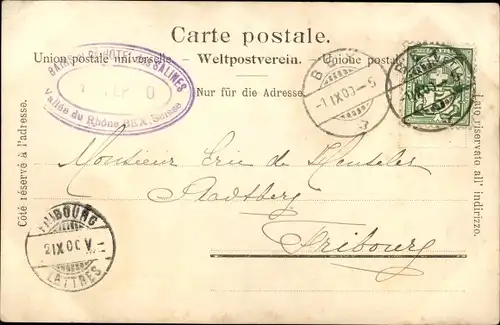 Carte postale.
Union postale universelle. — Weltpostverein. — Unione postale
Nur für die Adresse.
Côté réservé à l'adresse.
Lato riservato all' indirizzo.
BAINS SALINES
SEP 0
Vallée du Rhône BEX Suisse
BEX
-1 IX 00 -5
Monsieur Eric de
Stadtberg
Fribourg
FRIBOURG
2 IX 00 V
LETTRES